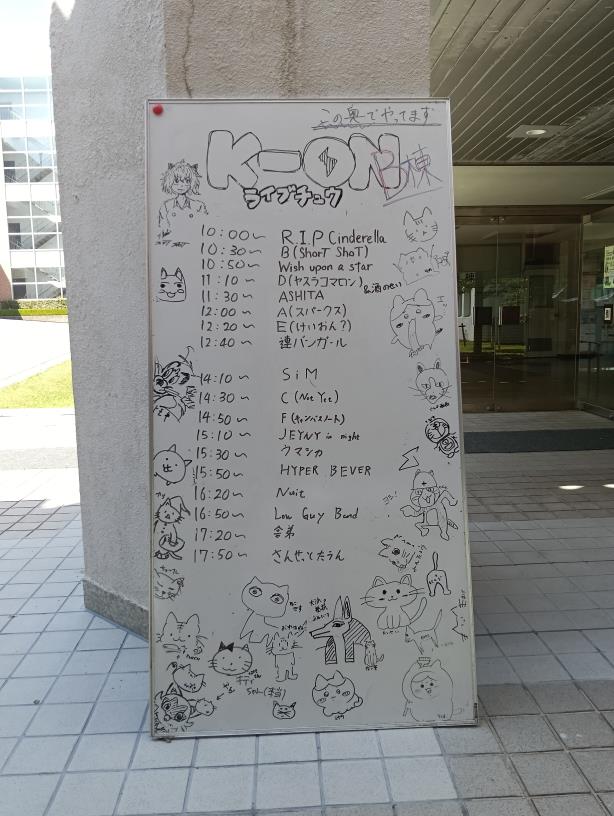 この奥でやってます
K-ON
B棟
ライブチュウ
10:00〜 R.I.P Cinderella
10:30〜 B(ShorT ShoT)
10:50〜 Wish upon a star
11:10〜 D(ヤスラコマロン)
11:30〜 ASHITA
12:00〜 A(スパークス)
12:20〜 E(けいおん?)
12:40〜 連バンガール
14:10〜 SiM
14:30〜 C(Not Yet)
14:50〜 F(キャンパスノート)
15:10〜 JEYNY in night
15:30〜 クマシカ
15:50〜 HYPER BEVER
16:20〜 Nuit
16:50〜 Low Guy Band
17:20〜 舎弟
17:50〜 さんせっとたうん